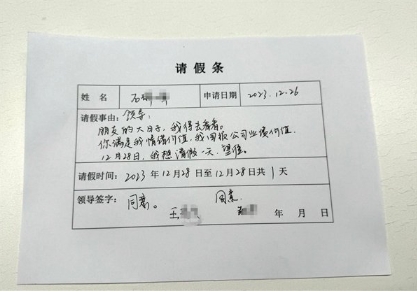 请假条
姓 名 石 申请日期 2023.12.26
请假事由：领导：
朋友的大日子，我得去看看。
你满足我情绪价值，我回报公司业绩价值，
12月28日，我想请假一天，望批。
请假时间：2023年12月28日至12月28日共1天
领导签字：同意。 同意
王 年 月 日